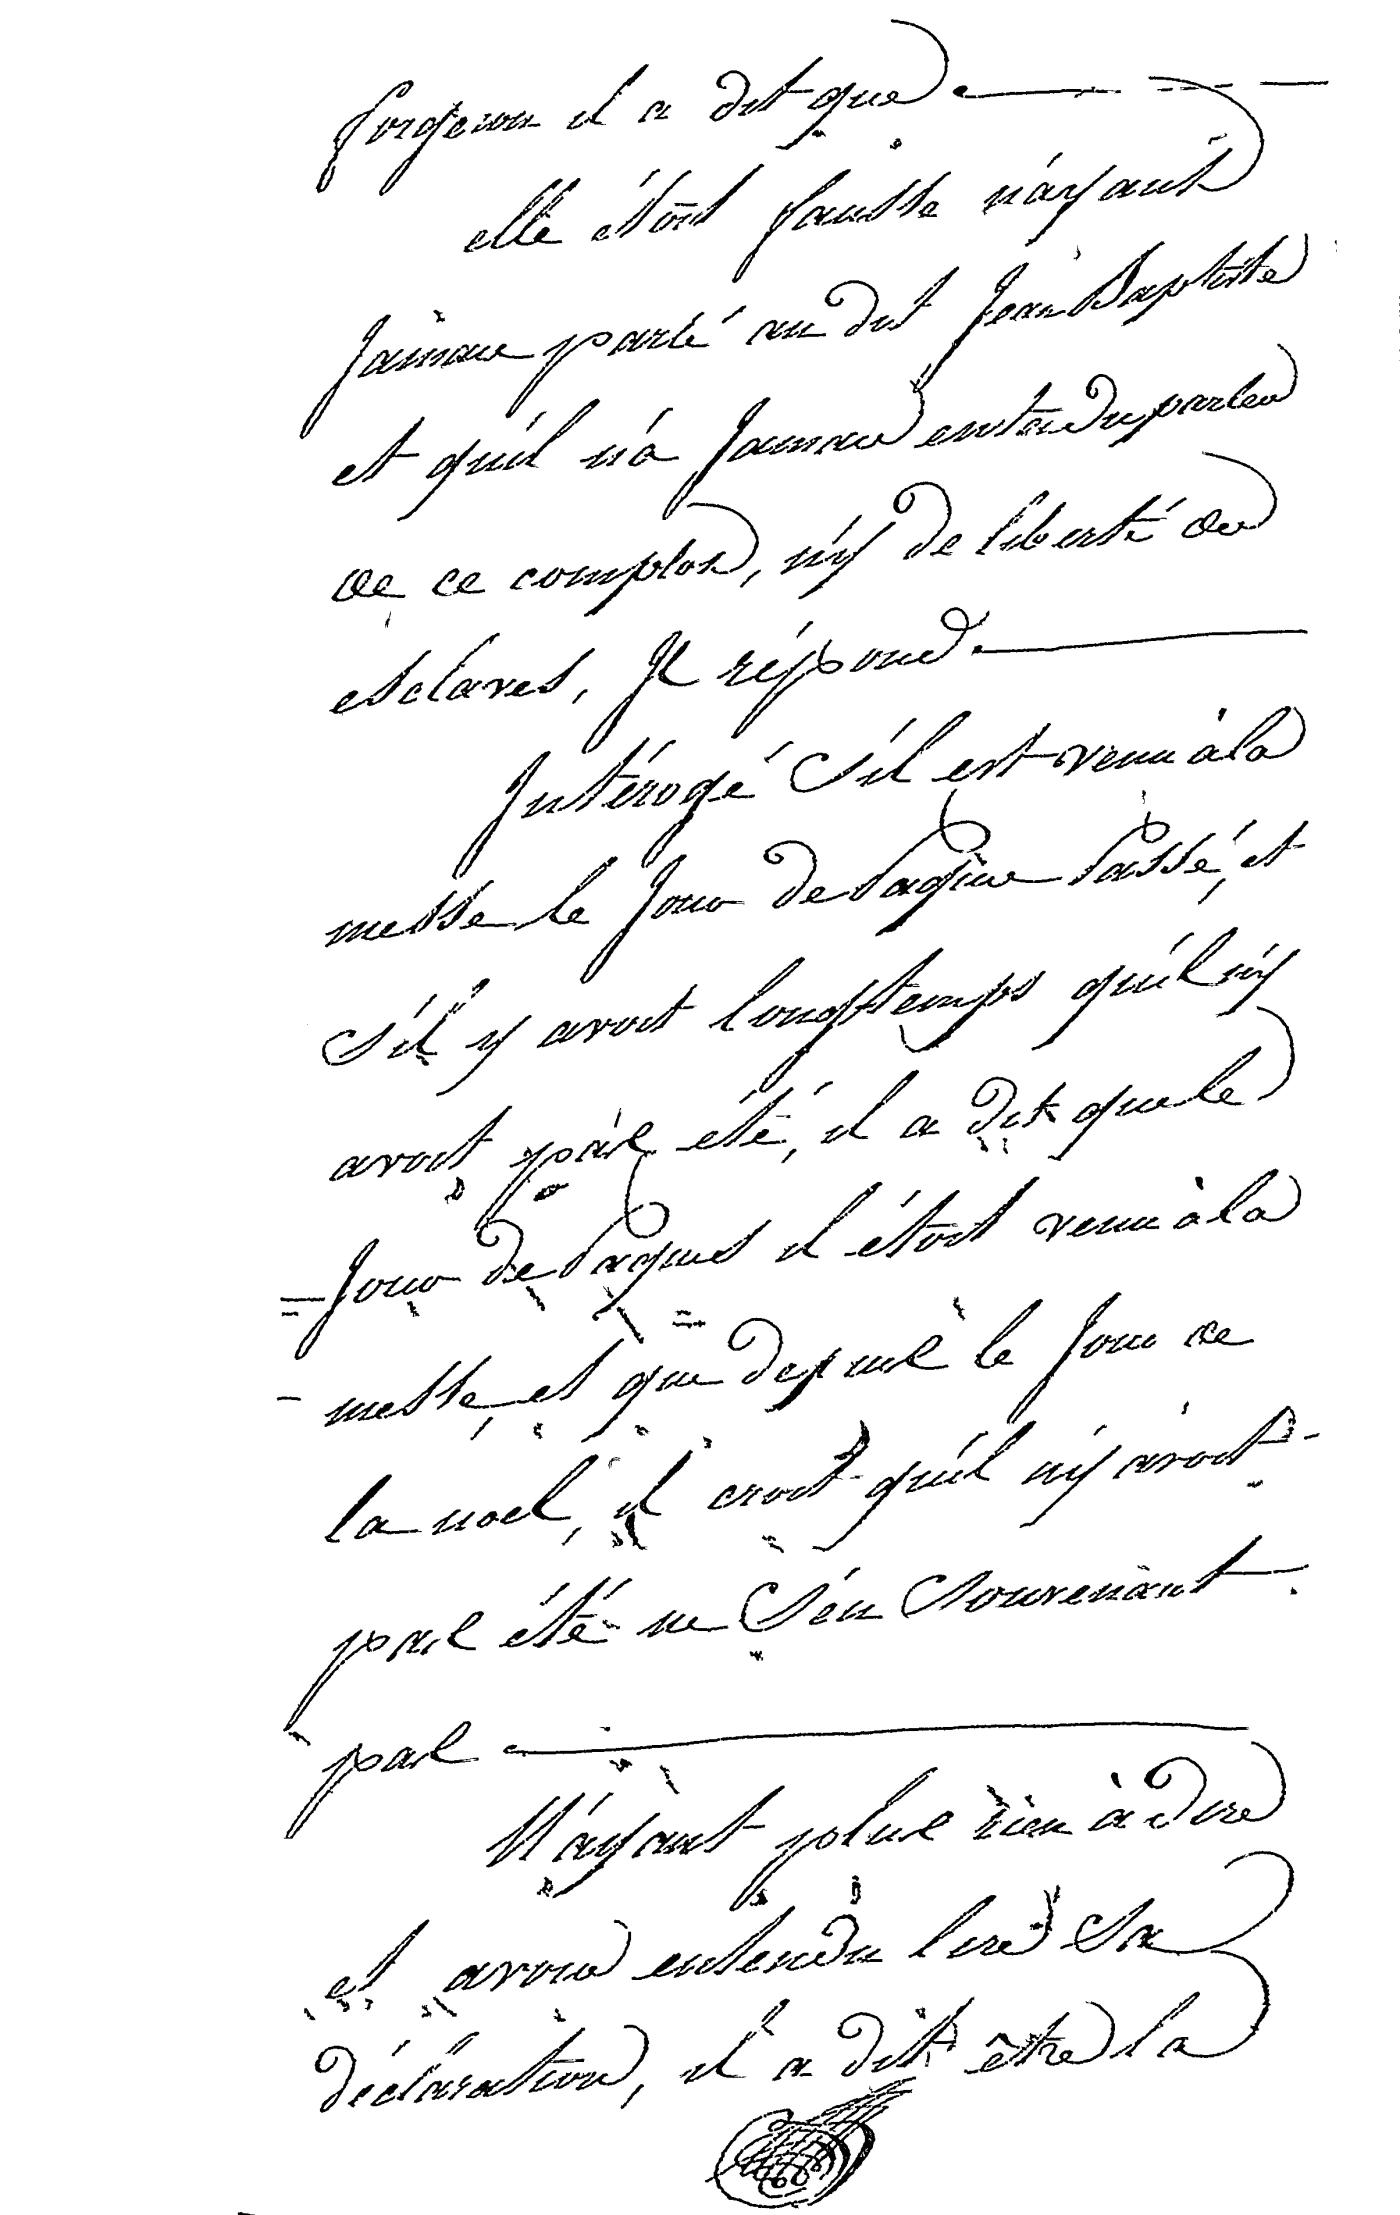 forgeron il a dit que
elle étoit fausse n'ayant
Jamais parlé au dit Jean Baptiste
et qu'il n'a Jamais entendu parler
de ce complot, n'y de liberté des
esclaves, Il répond
Intérogé s'il est venu à la
messe le Jour de Paque Passé, et
s'il y avoit longtemps qu'il n'y
avoit pas été, il a dit que le
Jour de Paques il étoit venu à la
messe, et que depuis le Jour de
la noel, il croit qu'il n'y avoit
pas été ne s'en souvenant
pas
N'ayant plus rien à dire
et avoir entendu lire sa
déclaration, il a dit être la